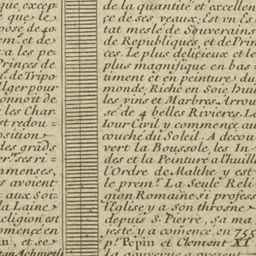 que, except
que le
pose de 40
em: et de
a les pe
Princes de
de Tripo
Alger pour
onnoit de
les Char
st redou =
osition
des grãds
ses ri =
mmenses,
s avoient
aux Sol
la Laine
eligion est
mmencé en
et se
de la quantité et excellen
ce de ses veaux. Est un Es
tat meslé de Souverains
de Republiques, et de Prin
ces, le plus delitieux et le
plus magnifique en bas
timent et en peinture du
monde, Riche en Soie, hui
les, vins et Marbres, Arrou
sé de 4 belles Rivieres. La
Jour Civil y commence au
couché du Soleil. A décou
vert la Boussole, les In
des et la Peinture a l'huille
L'Ordre de Malthe y est
le prem.r La Seule Reli
gion Romaine s'i profess
l'Eglise y a son throsne
depuis S. Pierre, sa ma
reste y a comencé en 755
p.r Pepin et Clement XI